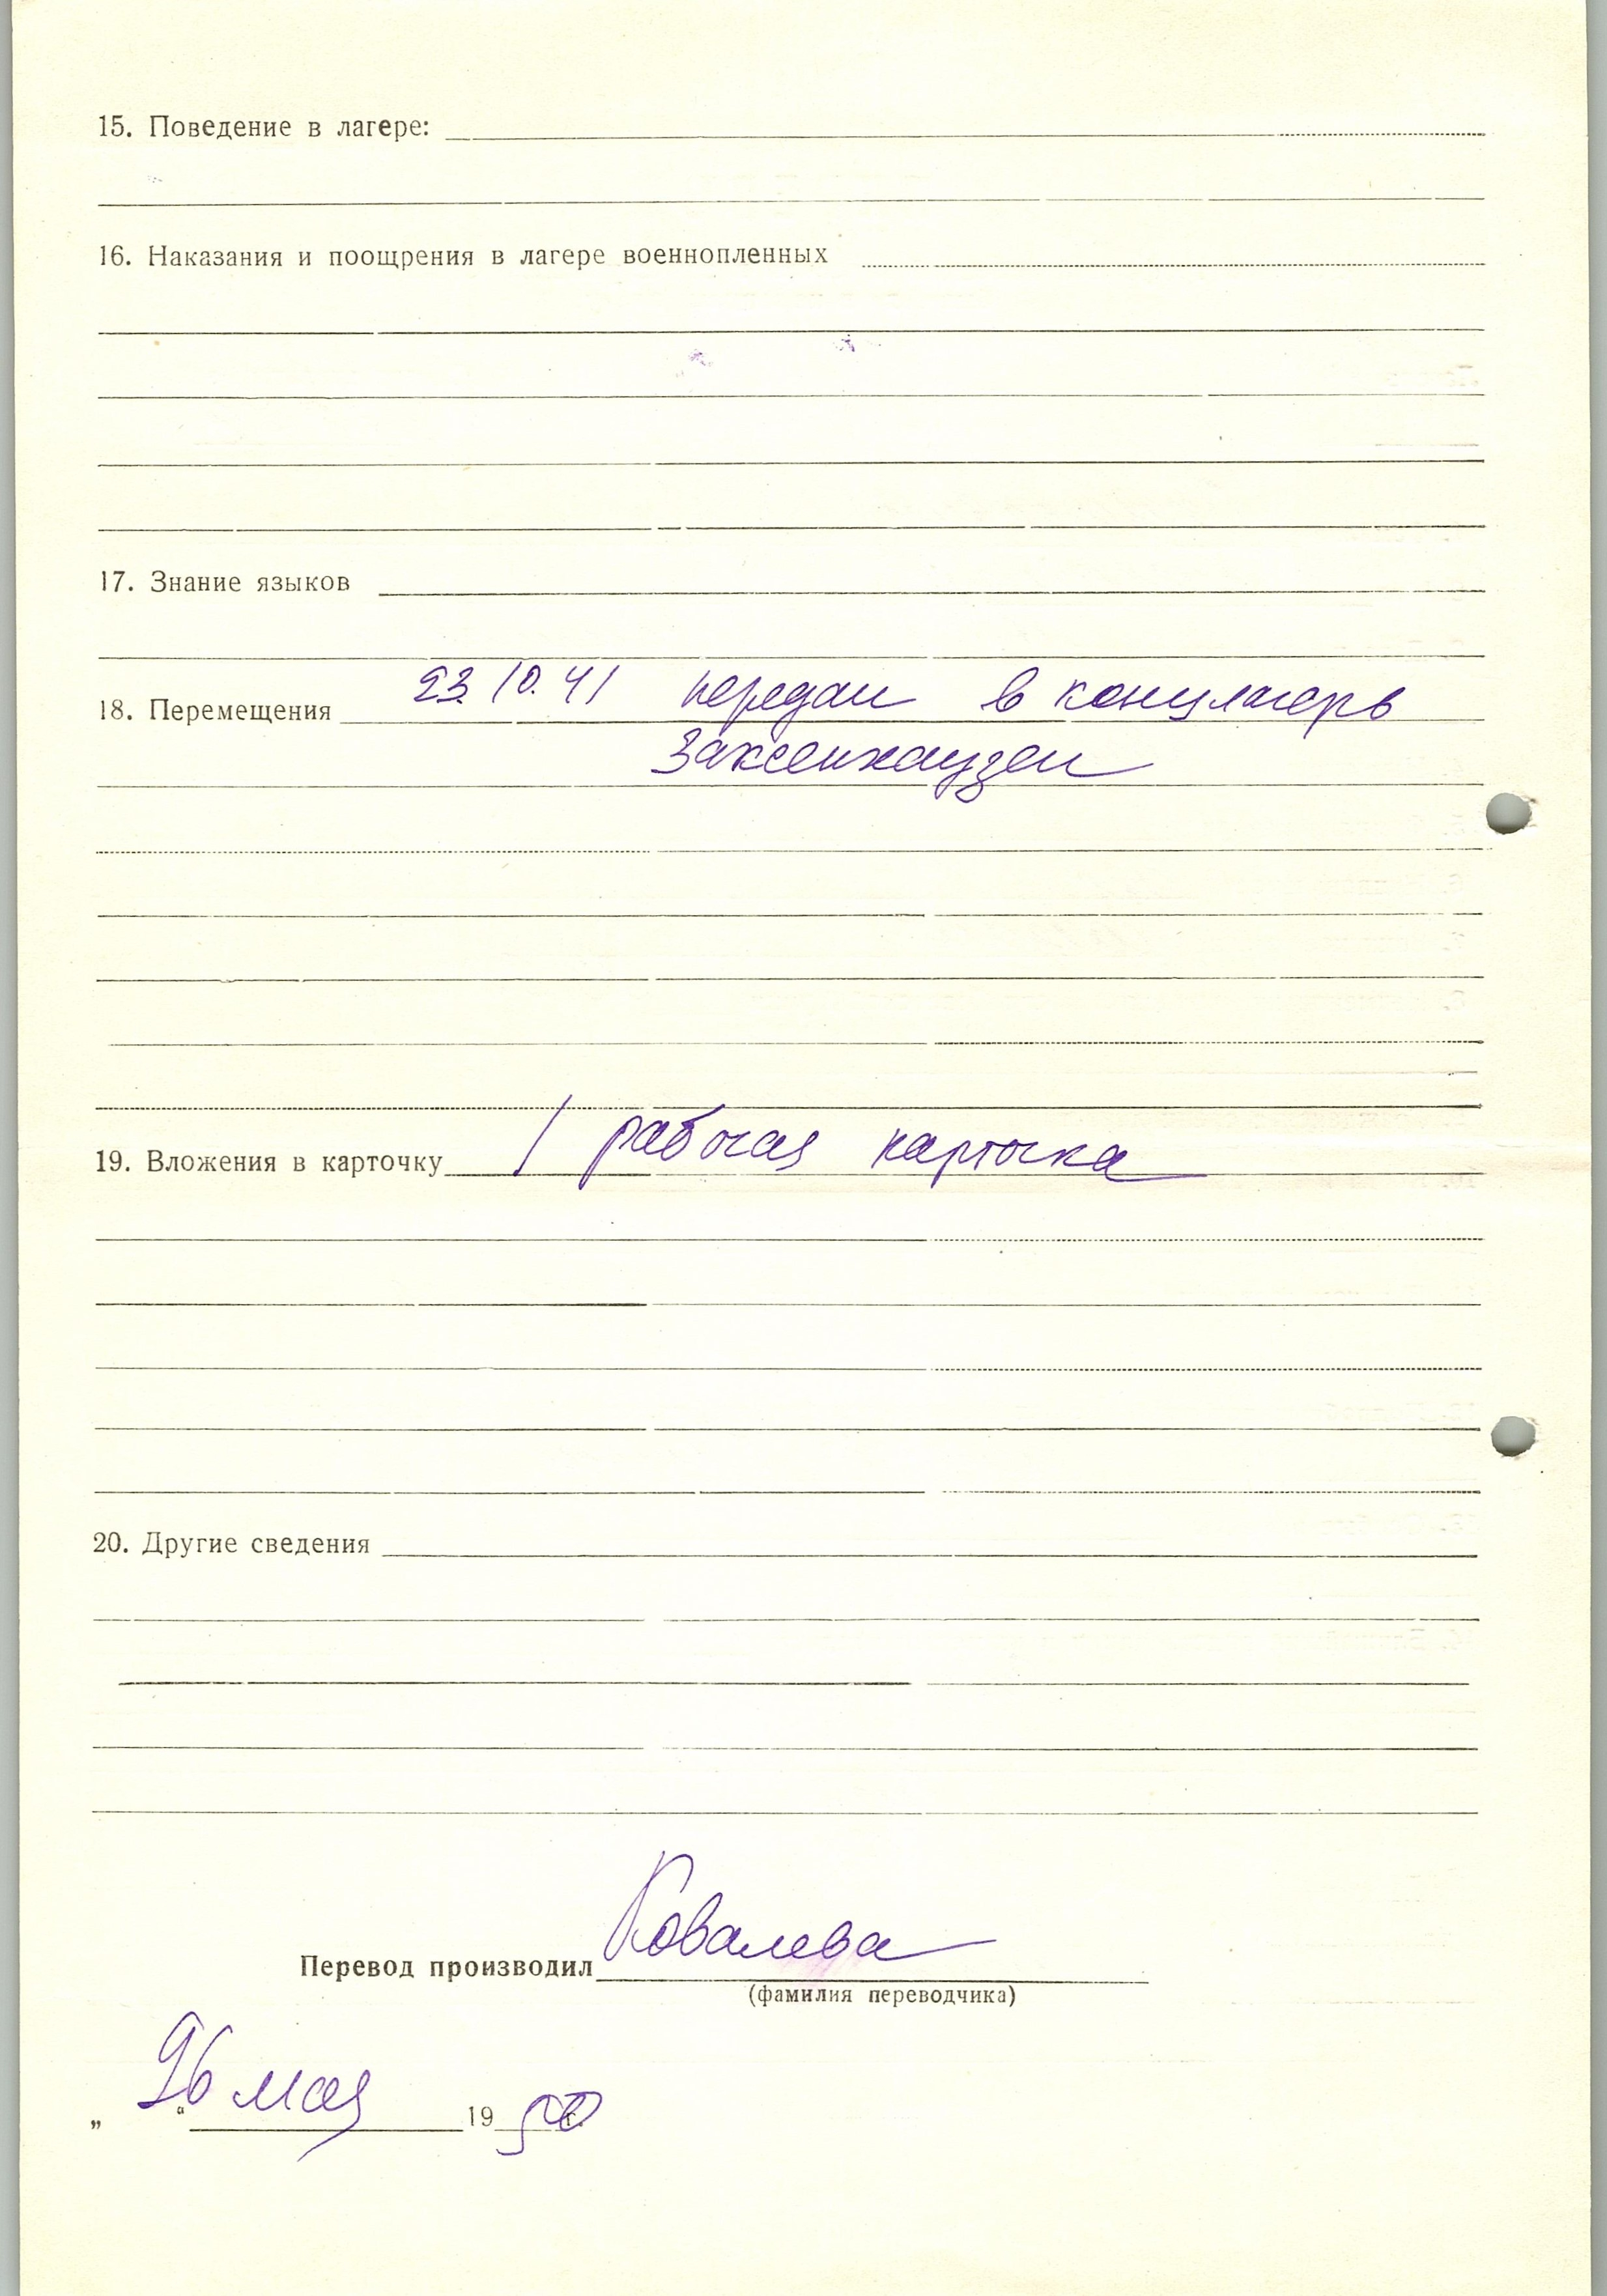 15. Поведение в лагере:
16. Наказания и поощрения в лагере военнопленных
17. Знание языков
18. Перемещения 23.10.41 передан в концлагерь
Заксенхаузен
19. Вложения в карточку 1 рабочая карточка
20. Другие сведения
Перевод производил Ковалева
(фамилия переводчика)
„26“ мая 1950 г.